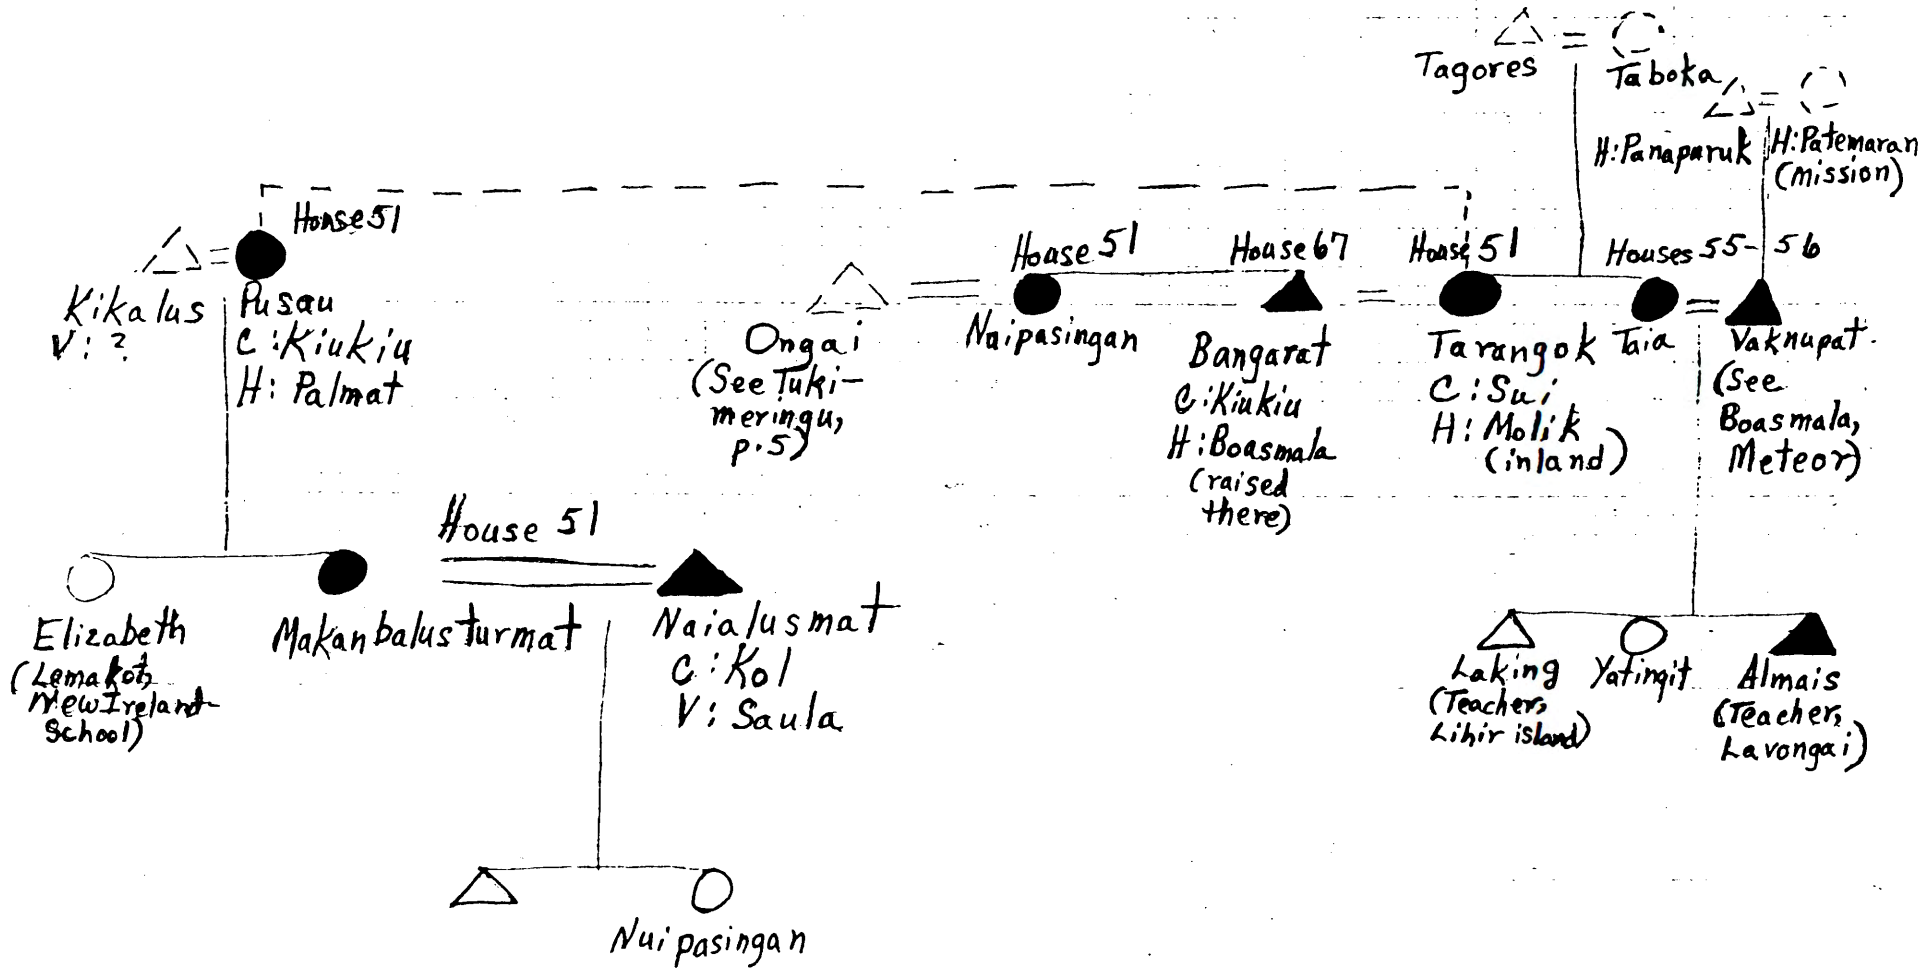 Tagores
Taboka
H: Panaparuk
H: Patemaran
(mission)
House 51
Kikalus
V: ?
Pusau
C: Kiukiu
H: Palmat
House 51
House 67
House 51
Houses 55-56
Ongai
(See Tuki-
meringu,
p. 5)
Naipasingan
Bangarat
C: Kiukiu
H: Boasmala
(raised
there)
Tarangok
C: Sui
H: Molik
(inland)
Taia
Vaknupat.
(See
Boasmala,
Meteor)
House 51
Elizabeth
(Lemakot,
New Ireland-
School)
Makanbalusturmat
Naialusmat
C: Kol
V: Saula
Laking
(Teacher,
Lihir island)
Yatingit
Almais
(Teacher,
Lavongai)
Nuipasingan